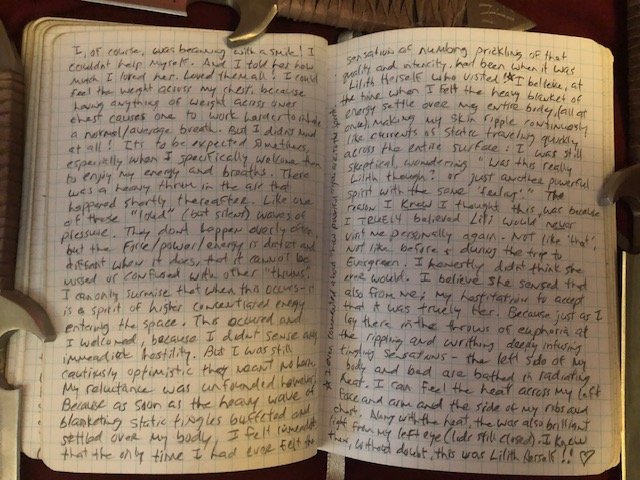 I, of course, was beaming with a smile! I
couldnt help myself. And I told her how
much I loved her. Loved them all! I could
feel the weight across my chest, because
having anything of weight across ones
chest causes one to work harder to inhale
a normal/average breath. But I didnt mind
at all! Its to be expected sometimes,
especially when I specifically welcome them
to enjoy my energy and breaths. There
was a heavy thrum in the air that
happened shortly thereafter. Like one
of those "loud" (but silent) waves of
pressure. They dont happen overly often,
but the force/power/energy is distict and
diffrant when it does, that it cannot be
missed or confused with other "thrums".
I can only surmise that when this occurs - it
is a spirit of higher concentrated energy
entering the space. This occured and
I welcomed, because I didnt sense any
immediate hostility. But I was still
cautiously optimistic they meant no harm.
My reluctance was unfounded however,
Because as soon as the heavy wave of
blanketing static tingles buffeted and
settled over my body, I felt immediate
that the only time I had ever felt the
sensation of numbing prickling of that
quality and intencity, had been when it was
Lilith Herself who visited! I believe, at
the time when I felt the heavy blanket of
energy settle over my entire body, (all at
once) making my skin ripple continuously
like currents of static traveling quickly
across the entire surface. I was still
skeptical, wondering "Was this really
Lilith though? or just another powerful
spirit with the same 'feeling'." The
reason I knew I thought this, was because
I TRUELY believed Lili would never
visit me personally again. Not like 'that',
Not like before & during the trip to
Evergreen. I honestly didnt think she
ever would. I believe She sensed that
also from me; my hesitation to accept
that it was truely Her. Because just as I
lay there in the throws of euphoria at
the ripping and writhing deeply infusing
tingling sensations - the left side of my
body and bed are bathed in radiating
heat. I can feel the heat across my left
face and arm and the side of my ribs and
chest. Along with the heat, the was also brilliant
light from my left eye (lids still closed). I knew
then, without doubt, this was Lilith Herself!! ♡